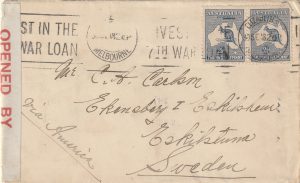 OPENED BY
ST IN THE
WAR LOAN
MELBOURNE
VEST
7TH WAR
AUSTRALIA
AUSTRALIA
Mr. C. A. Carlson
Ekensberg Eskilshem
Eskilstuna
Sweden
Via America